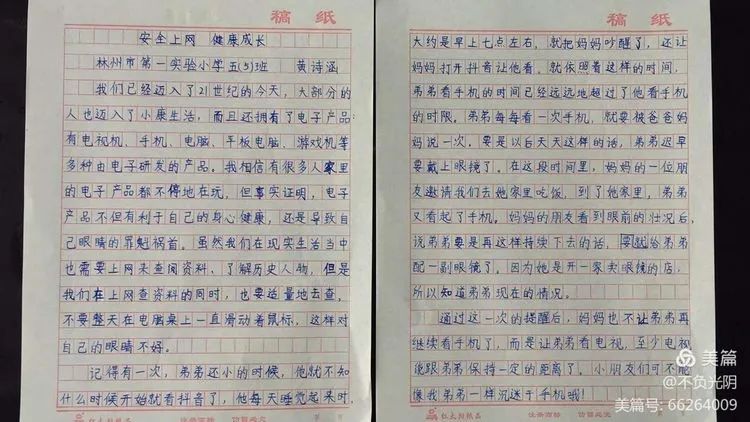 稿 纸
安全上网 健康成长
林州市第一实验小学五(5)班 黄诗涵
我们已经迈入了21世纪的今天，大部分的
人也迈入了小康生活，而且还拥有了电子产品：
有电视机、手机、电脑、平板电脑、游戏机等
多种由电子研发的产品。我相信有很多人家里
的电子产品都不停地在玩，但事实证明，电子
产品不但有利于自己的身心健康，还是导致自
己眼睛的罪魁祸首。虽然我们在现实生活当中
也需要上网来查阅资料、了解历史人物，但是
我们在上网查资料的同时，也要适量地去查，
不要整天在电脑桌上一直滑动着鼠标，这样对
自己的眼睛不好。
记得有一次，弟弟还小的时候，他就不知
什么时候开始就看抖音了，他每天睡觉起来时，
稿 纸
大约是早上七点左右，就把妈妈吵醒了，还让
妈妈打开抖音让他看。就依照着这样的时间，
弟弟看手机的时间已经远远地超过了他看手机
的时限。弟弟每每看一次手机，就要挨爸爸妈
妈说一次。要是以后天天这样的话，弟弟迟早
要戴上眼镜了。在这段时间里，妈妈的一位朋
友邀请我们去她家里吃饭，到了他家里，弟弟
又看起了手机。妈妈的朋友看到眼前的壮况后，
说弟弟要是再这样持续下去的话，要就给弟弟
配一副眼镜了。因为她是开一家卖眼镜的店，
所以知道弟弟现在的情况。
通过这一次的提醒后，妈妈也不让弟弟再
继续看手机了，而是让弟弟看电视，至少电视
能跟弟弟保持一定的距离了。小朋友们可不能
像我弟弟一样沉迷于手机哦！
美篇
@不负光阴
美篇号: 66264009